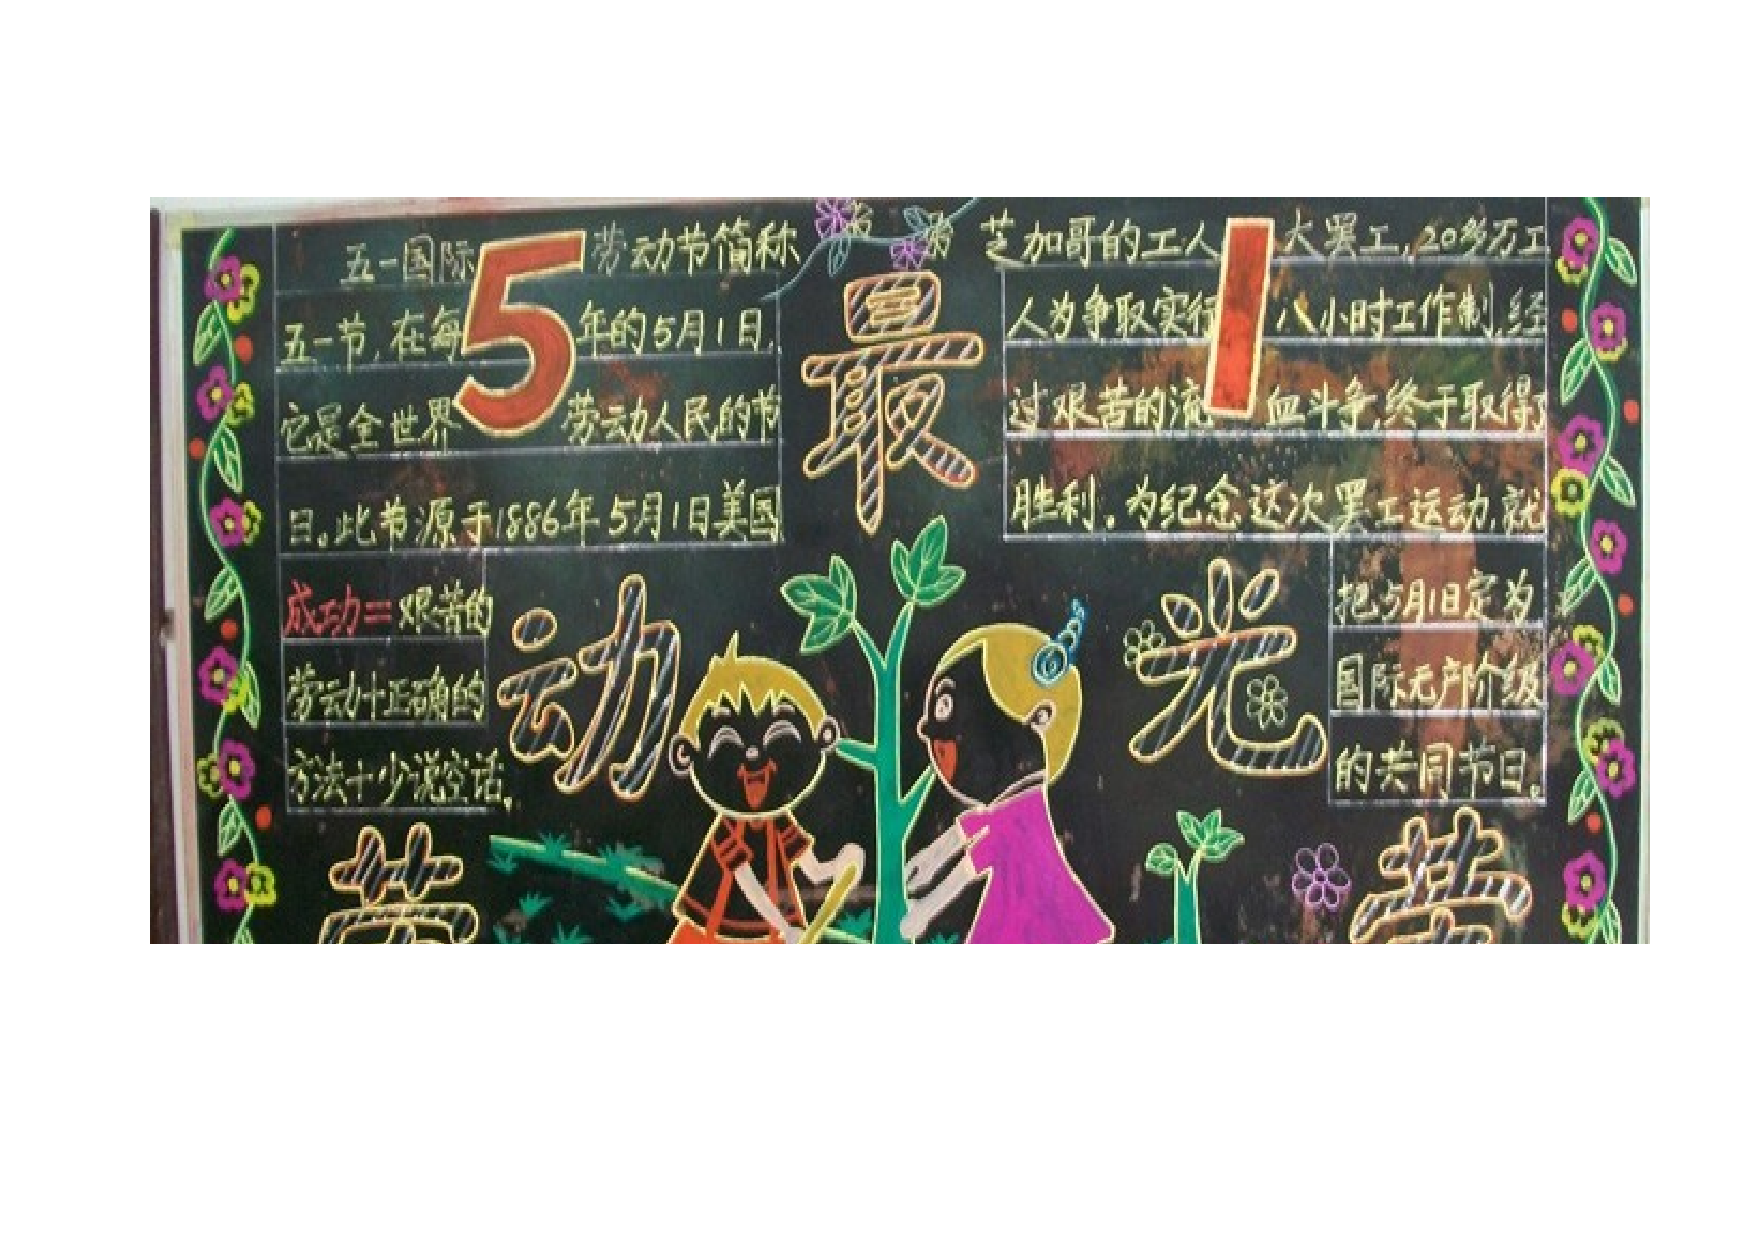 五一国际劳动节简称
五一节,在每年的5月1日,
它是全世界劳动人民的节
日。此节源于1886年5月1日美国
芝加哥的工人大罢工,20多万工
人为争取实行八小时工作制,经
过艰苦的流血斗争,终于取得了
胜利。为纪念这次罢工运动,就
把5月1日定为
国际无产阶级
的共同节日。
5 1
成功=艰苦的
劳动+正确的
方法+少说空话。
劳动最光荣